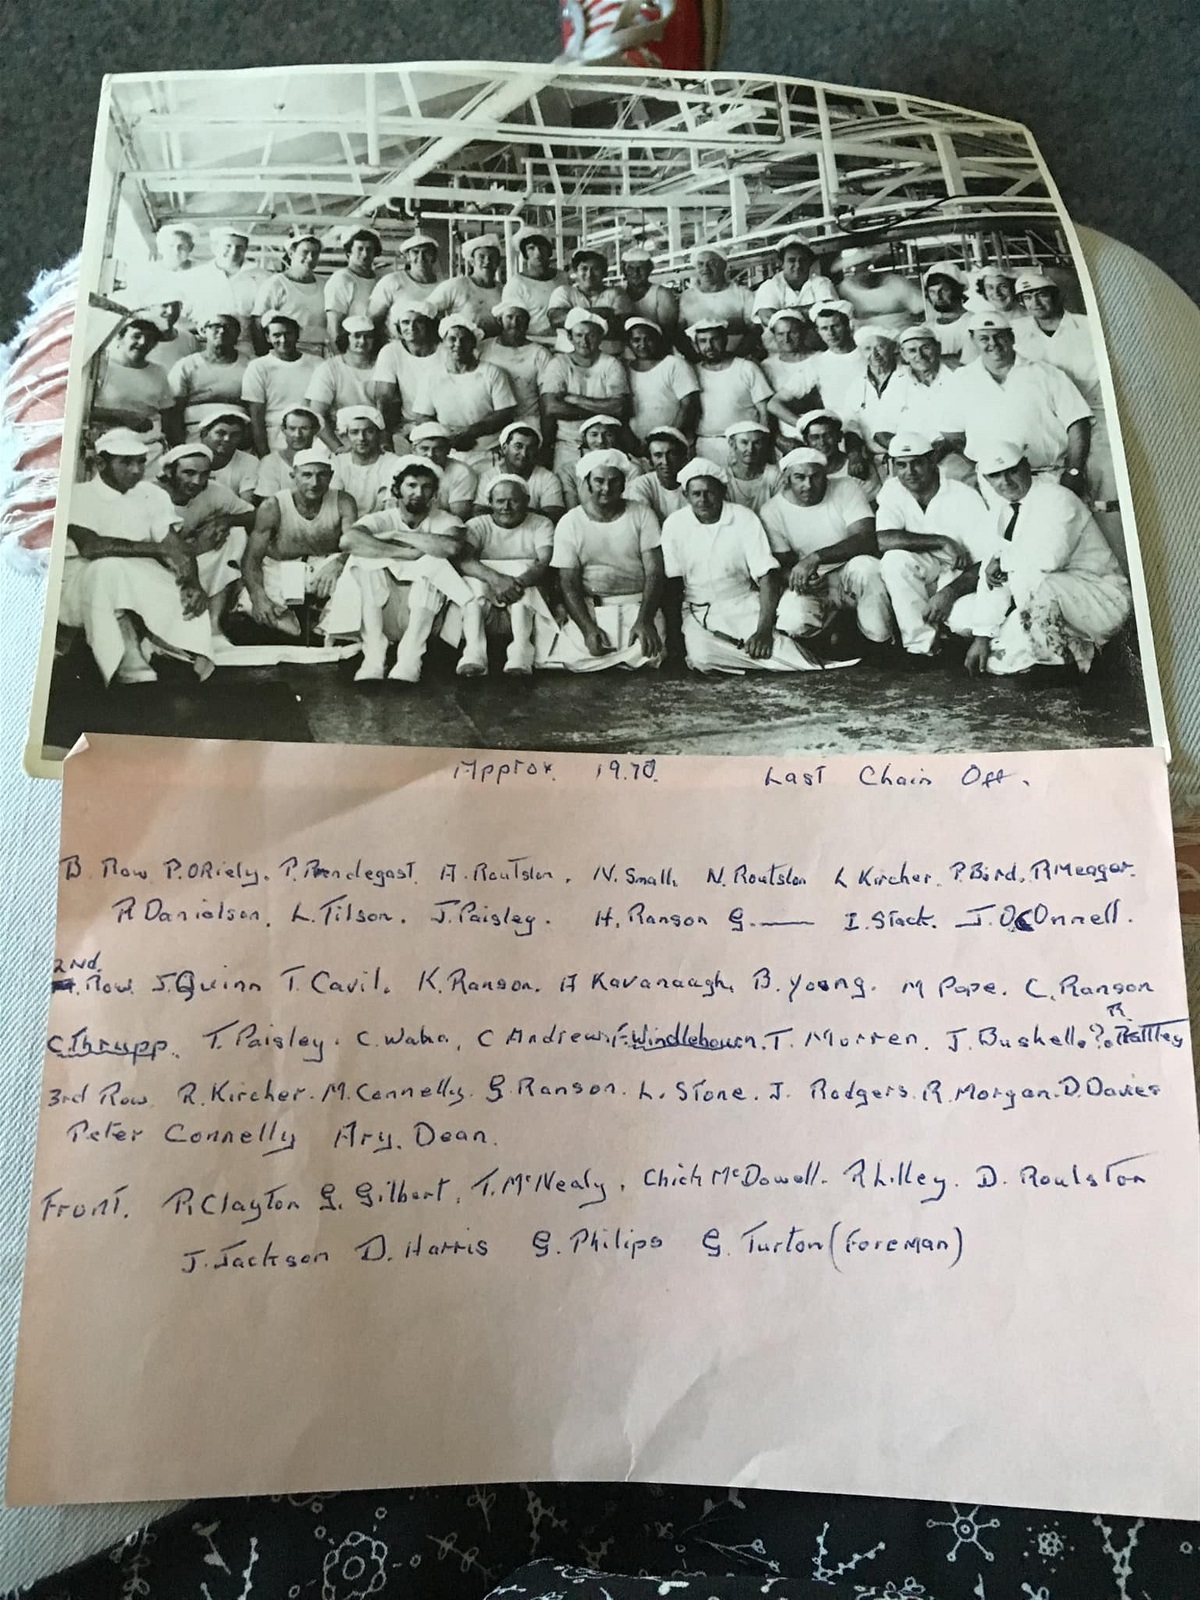 Approx. 19.70. Last Chain Off.
B. Row P. ORiely. P. Prendegast. A. Routston. N. Small. N. Routston L Kircher. P. Bird. R Meager.
R Danielson. L. Tilson. J. Paisley. H. Ranson G.—— I. Stack. J. OConnell.
2nd.
Row. J. Quinn T. Cavil. K. Ranson. A Kavanaagh. B. Young. M Pope. C. Ranson
R.
C. Thrupp. T. Paisley. C. Waha, C Andrew. F. Windlebourn. T. Morren. J. Bushell. ?.
3rd Row. R. Kircher. M. Connelly. G. Ranson. L. Stone. J. Rodgers. R. Morgan. D. Davies
Peter Connelly Ary. Dean.
Front. P. Clayton G. Gilbert, T. McNealy. Chick McDowell. R Lilley. D. Roulston
J. Jackson D. Harris G. Philips G. Turton (Foreman)